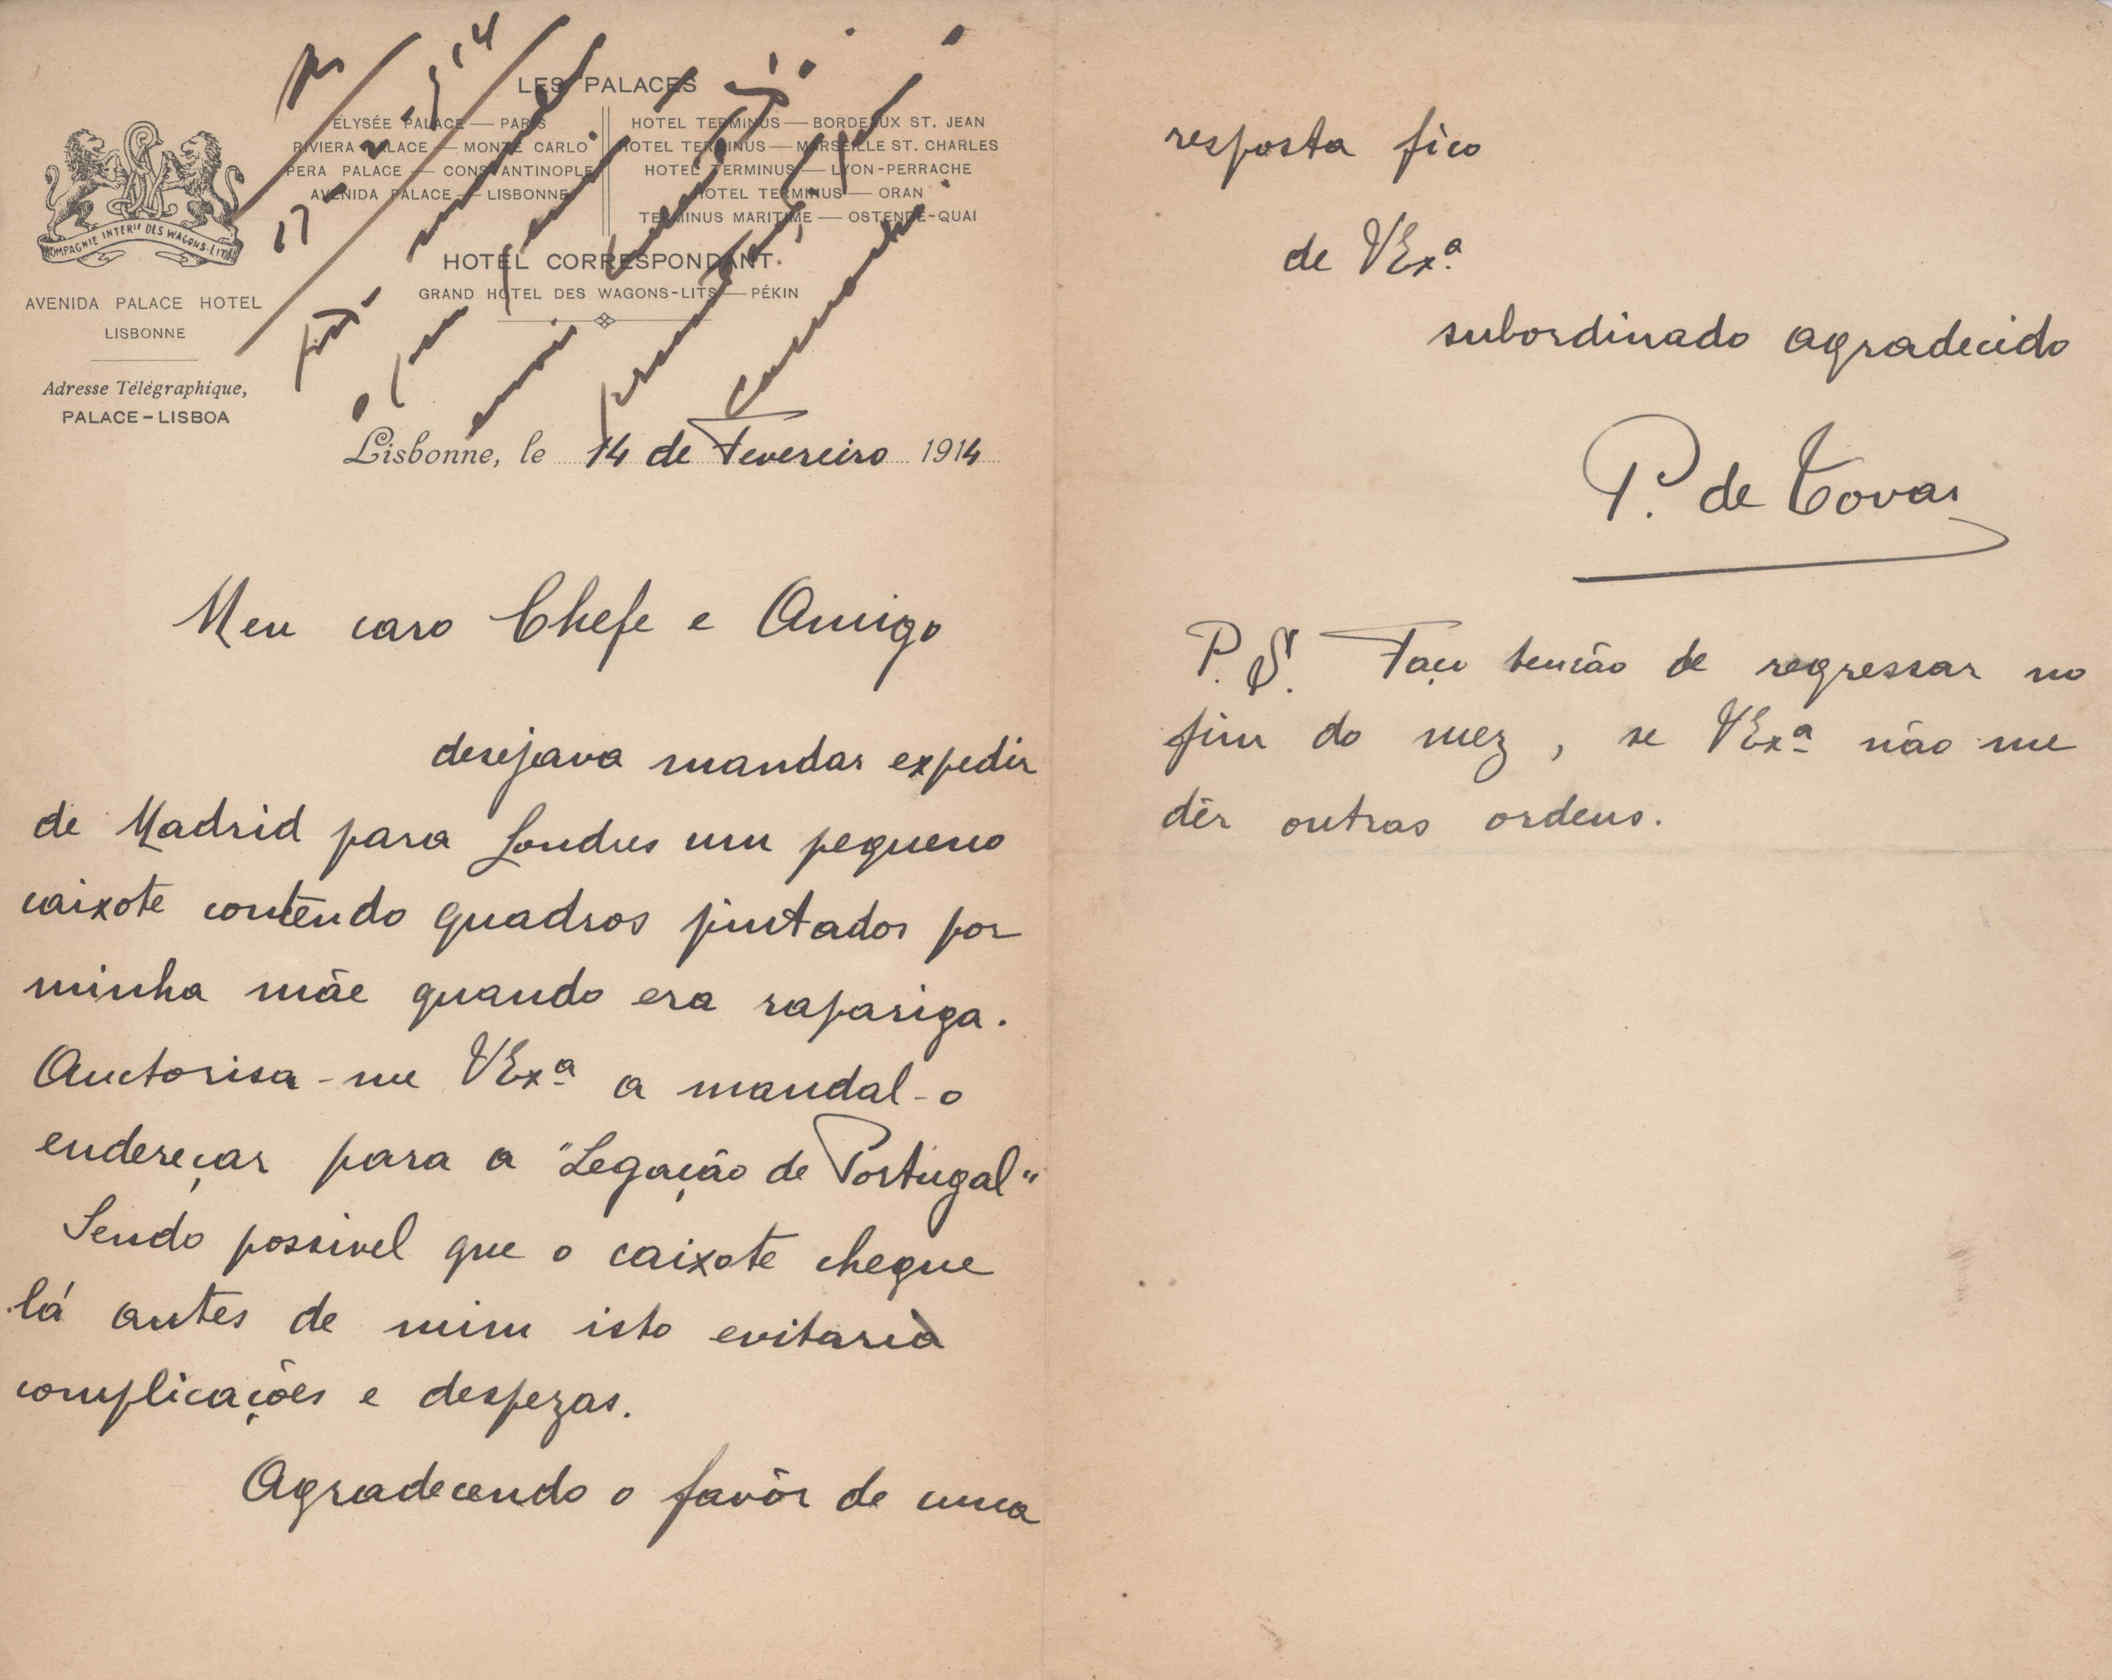 LES PALACES
ÉLYSÉE PALACE — PARIS
RIVIERA PALACE — MONTE CARLO
PERA PALACE — CONSTANTINOPLE
AVENIDA PALACE — LISBONNE
HOTEL TERMINUS — BORDEAUX ST. JEAN
HOTEL TERMINUS — MARSEILLE ST. CHARLES
HOTEL TERMINUS — LYON-PERRACHE
HOTEL TERMINUS — ORAN
TERMINUS MARITIME — OSTENDE-QUAI
HOTEL CORRESPONDANT
GRAND HÔTEL DES WAGONS-LITS — PÉKIN
COMPAGNIE INTERLE DES WAGONS-LITS
AVENIDA PALACE HOTEL
LISBONNE
Adresse Télégraphique,
PALACE-LISBOA
17-2-914
Lisbonne, le 14 de Fevereiro 1914
Meu caro Chefe e Amigo
desejava mandar expedir
de Madrid para Londres um pequeno
caixote contendo quadros pintados por
minha mãe quando era rapariga.
Auctorisa-me VExª a mandal-o
endereçar para a "Legação de Portugal"
Sendo possivel que o caixote chegue
lá antes de mim isto evitaria
complicações e despezas.
Agradecendo o favôr de uma
resposta fico
de VExª
subordinado agradecido
P. de Tovar
P.S. Faço tenção de regressar no
fim do mez, se VExª não me
dér outras ordens.